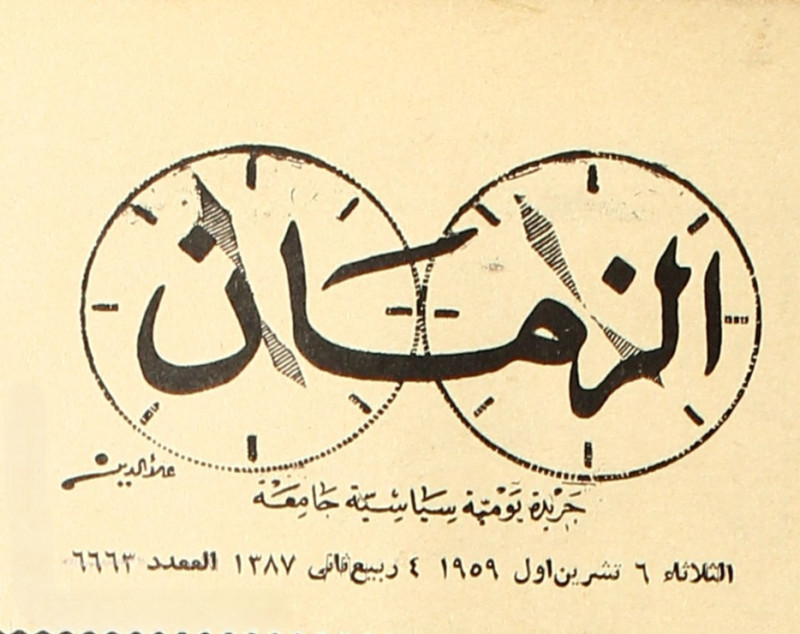 الزمان
علاء الدين
جَرْيدة يَوْميّة سِيَاسْيّة جَامِعَة
الثلاثاء ٦ تشرين اول ١٩٥٩ ٤ ربيع ثاني ١٣٨٧ العدد ٦٦٦٣